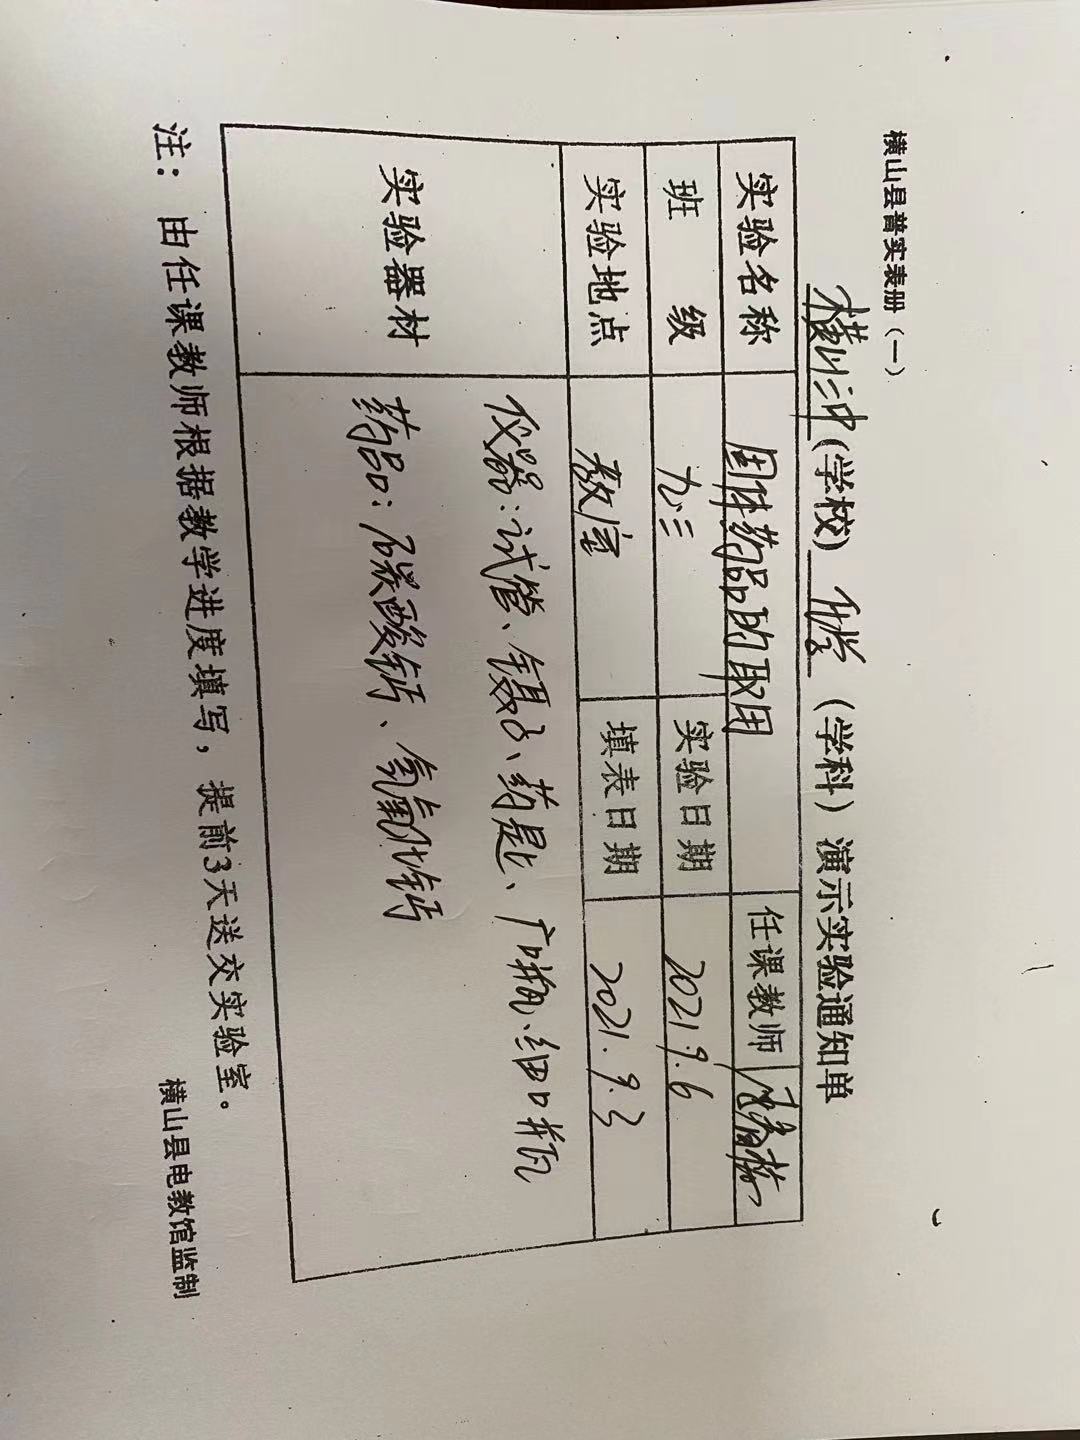 横山县普实表册（一）
横山三中(学校) 化学 （学科）演示实验通知单
实验名称 固体药品的取用 任课教师
班 级 九三 实验日期 2021.9.6
实验地点 教室 填表日期 2021.9.3
实验器材 仪器：试管、镊子、药匙、广口瓶、细口瓶
药品：碳酸钙、氢氧化钙
注：由任课教师根据教学进度填写，提前3天送交实验室。
横山县电教馆监制